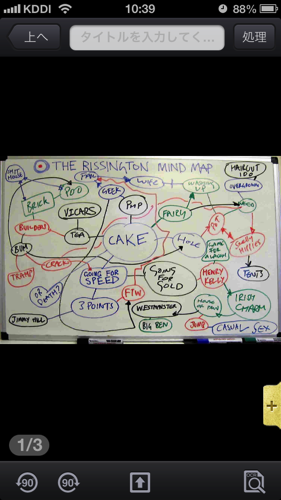 KDDI 10:39 88%
上へ
タイトルを入力してく…
処理
THE RISSINGTON MIND MAP
HAIRCUT 100
POO
GEEK
WIFE
Brick
VICARS
POP
FAIRY
BUILDERS
TEA
CAKE
HOLE
BUM
CRACK
TRAMP
GOING FOR SPEED
GOING FOR GOLD
GAME FOR A LAUGH
HENRY KELLY
TENTS
OR DEATH?
3 POINTS
FTW
WESTMINSTER
IRISH CHARM
JIMMY HILL
BIG BEN
JUMP
CASUAL SEX
1/3
90
90
OCR